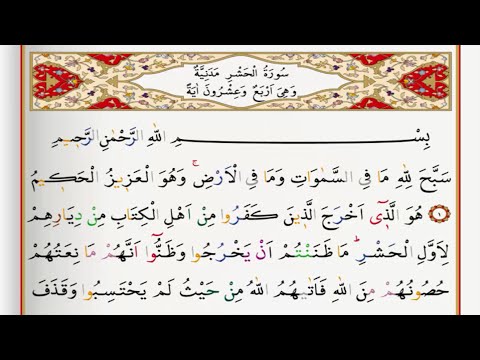 سُورَةُ الْحَشْرِ مَدَنِيَّةٌ
وَهِيَ اَرْبَعٌ وَعِشْرُونَ اٰيَةً
بِسْمِ اللّٰهِ الرَّحْمٰنِ الرَّحِيمِ
سَبَّحَ لِلّٰهِ مَا فِي السَّمٰوَاتِ وَمَا فِي الْاَرْضِۚ وَهُوَ الْعَزِيزُ الْحَكِيمُ
﴿١﴾ هُوَ الَّذ۪ٓي اَخْرَجَ الَّذ۪ينَ كَفَرُوا مِنْ اَهْلِ الْكِتَابِ مِنْ دِيَارِهِمْ
لِاَوَّلِ الْحَشْرِۜ مَا ظَنَنْتُمْ اَنْ يَخْرُجُوا وَظَنُّٓوا اَنَّهُمْ مَانِعَتُهُمْ
حُصُونُهُمْ مِنَ اللّٰهِ فَاَتٰيهُمُ اللّٰهُ مِنْ حَيْثُ لَمْ يَحْتَسِبُوا وَقَذَفَ